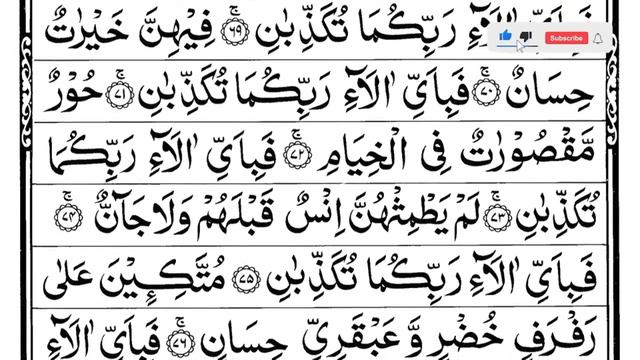 فَبِاَیِّ اٰلَآءِ رَبِّكُمَا تُكَذِّبٰنِ ۚ﴿۶۹﴾ فِیْهِنَّ خَیْرٰتٌ
Subscribe
حِسَانٌ ۚ﴿۷۰﴾ فَبِاَیِّ اٰلَآءِ رَبِّكُمَا تُكَذِّبٰنِ ۚ﴿۷۱﴾ حُوْرٌ
مَّقْصُوْرٰتٌ فِی الْخِیَامِ ۚ﴿۷۲﴾ فَبِاَیِّ اٰلَآءِ رَبِّكُمَا
تُكَذِّبٰنِ ۚ﴿۷۳﴾ لَمْ یَطْمِثْهُنَّ اِنْسٌ قَبْلَهُمْ وَلَا جَآنٌّ ۚ﴿۷۴﴾
فَبِاَیِّ اٰلَآءِ رَبِّكُمَا تُكَذِّبٰنِ ﴿۷۵﴾ مُتَّكِـِٕیْنَ عَلٰی
رَفْرَفٍ خُضْرٍ وَّ عَبْقَرِیٍّ حِسَانٍ ۚ﴿۷۶﴾ فَبِاَیِّ اٰلَآءِ